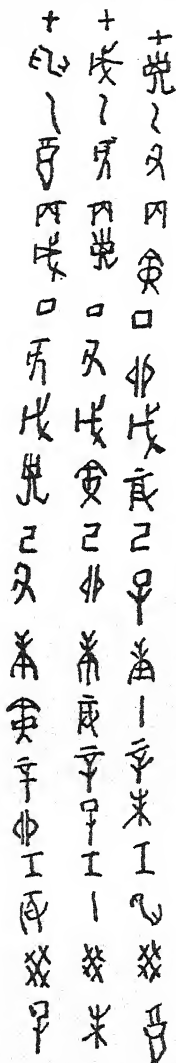 甲子乙丑丙寅丁卯戊辰己巳庚午辛未壬申癸酉
甲戌乙亥丙子丁丑戊寅己卯庚辰辛巳壬午癸未
甲申乙酉丙戌丁亥戊子己丑庚寅辛卯壬辰癸巳